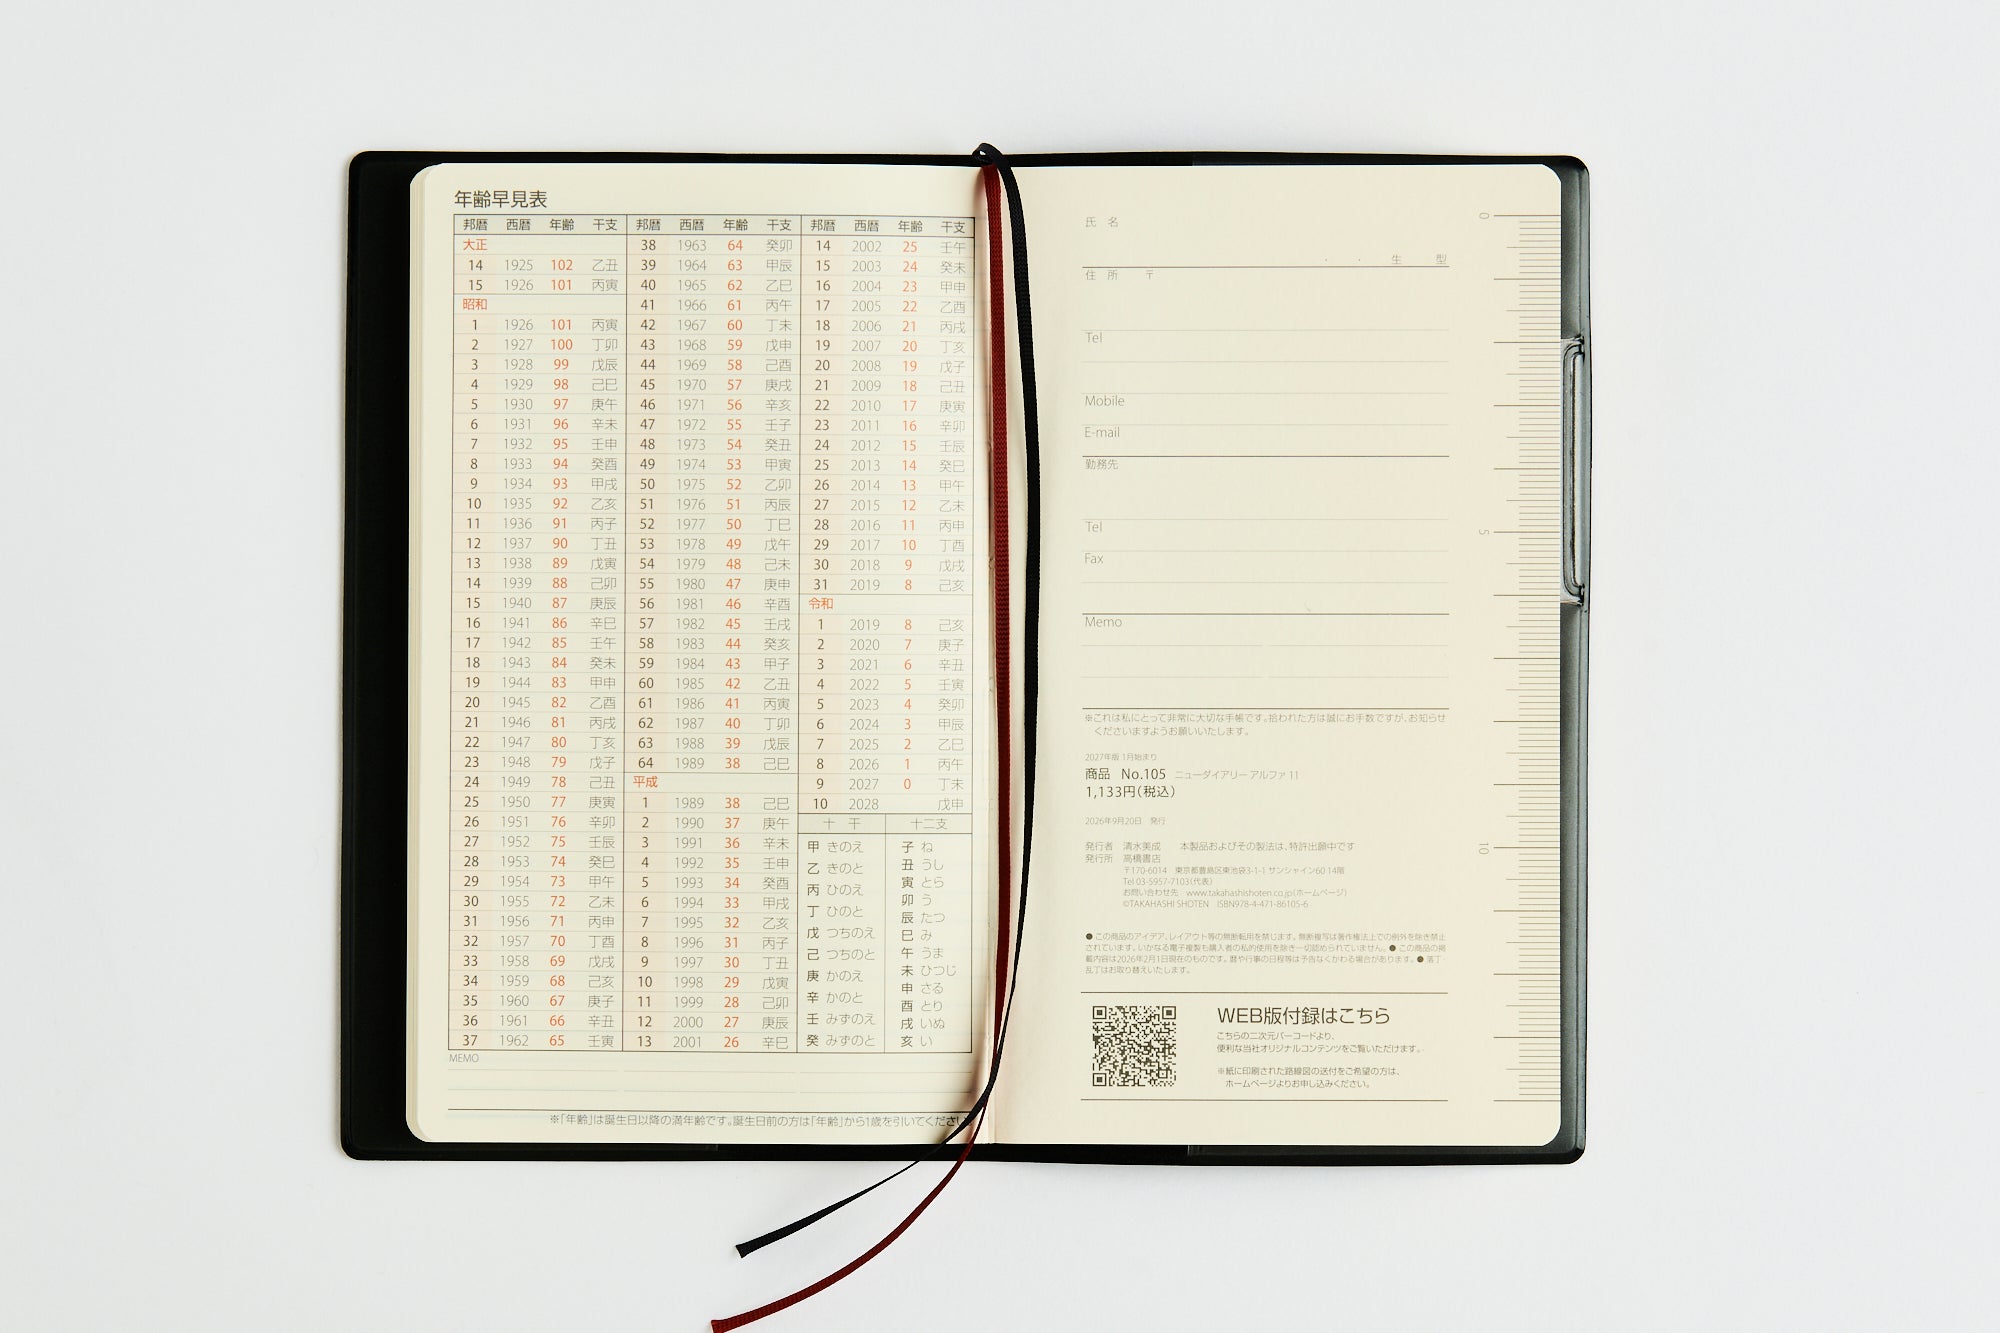 年齢早見表
邦暦 西暦 年齢 干支
大正
14 1925 102 乙丑
15 1926 101 丙寅
昭和
1 1926 101 丙寅
2 1927 100 丁卯
3 1928 99 戊辰
4 1929 98 己巳
5 1930 97 庚午
6 1931 96 辛未
7 1932 95 壬申
8 1933 94 癸酉
9 1934 93 甲戌
10 1935 92 乙亥
11 1936 91 丙子
12 1937 90 丁丑
13 1938 89 戊寅
14 1939 88 己卯
15 1940 87 庚辰
16 1941 86 辛巳
17 1942 85 壬午
18 1943 84 癸未
19 1944 83 甲申
20 1945 82 乙酉
21 1946 81 丙戌
22 1947 80 丁亥
23 1948 79 戊子
24 1949 78 己丑
25 1950 77 庚寅
26 1951 76 辛卯
27 1952 75 壬辰
28 1953 74 癸巳
29 1954 73 甲午
30 1955 72 乙未
31 1956 71 丙申
32 1957 70 丁酉
33 1958 69 戊戌
34 1959 68 己亥
35 1960 67 庚子
36 1961 66 辛丑
37 1962 65 壬寅
邦暦 西暦 年齢 干支
38 1963 64 癸卯
39 1964 63 甲辰
40 1965 62 乙巳
41 1966 61 丙午
42 1967 60 丁未
43 1968 59 戊申
44 1969 58 己酉
45 1970 57 庚戌
46 1971 56 辛亥
47 1972 55 壬子
48 1973 54 癸丑
49 1974 53 甲寅
50 1975 52 乙卯
51 1976 51 丙辰
52 1977 50 丁巳
53 1978 49 戊午
54 1979 48 己未
55 1980 47 庚申
56 1981 46 辛酉
57 1982 45 壬戌
58 1983 44 癸亥
59 1984 43 甲子
60 1985 42 乙丑
61 1986 41 丙寅
62 1987 40 丁卯
63 1988 39 戊辰
64 1989 38 己巳
平成
1 1989 38 己巳
2 1990 37 庚午
3 1991 36 辛未
4 1992 35 壬申
5 1993 34 癸酉
6 1994 33 甲戌
7 1995 32 乙亥
8 1996 31 丙子
9 1997 30 丁丑
10 1998 29 戊寅
11 1999 28 己卯
12 2000 27 庚辰
13 2001 26 辛巳
邦暦 西暦 年齢 干支
14 2002 25 壬午
15 2003 24 癸未
16 2004 23 甲申
17 2005 22 乙酉
18 2006 21 丙戌
19 2007 20 丁亥
20 2008 19 戊子
21 2009 18 己丑
22 2010 17 庚寅
23 2011 16 辛卯
24 2012 15 壬辰
25 2013 14 癸巳
26 2014 13 甲午
27 2015 12 乙未
28 2016 11 丙申
29 2017 10 丁酉
30 2018 9 戊戌
31 2019 8 己亥
令和
1 2019 8 己亥
2 2020 7 庚子
3 2021 6 辛丑
4 2022 5 壬寅
5 2023 4 癸卯
6 2024 3 甲辰
7 2025 2 乙巳
8 2026 1 丙午
9 2027 0 丁未
10 2028 戊申
十干
甲 きのえ
乙 きのと
丙 ひのえ
丁 ひのと
戊 つちのえ
己 つちのと
庚 かのえ
辛 かのと
壬 みずのえ
癸 みずのと
十二支
子 ね
丑 うし
寅 とら
卯 う
辰 たつ
巳 み
午 うま
未 ひつじ
申 さる
酉 とり
戌 いぬ
亥 い
MEMO
※「年齢」は誕生日以降の満年齢です。誕生日前の方は「年齢」から1歳を引いてください
氏 名
・ ・ 生 型
住 所 〒
Tel
Mobile
E-mail
勤務先
Tel
Fax
Memo
※これは私にとって非常に大切な手帳です。拾われた方は誠にお手数ですが、お知らせ
くださいますようお願いいたします。
2027年版 1月始まり
商品 No.105 ニューダイアリー アルファ 11
1,133円(税込)
2026年9月20日 発行
発行者 清水美成 本製品およびその製法は、特許出願中です
発行所 高橋書店
〒170-6014 東京都豊島区東池袋3-1-1 サンシャイン60 14階
Tel 03-5957-7103(代表)
お問い合わせ先 www.takahashishoten.co.jp(ホームページ)
©TAKAHASHI SHOTEN ISBN978-4-471-86105-6
● この商品のアイデア、レイアウト等の無断転用を禁じます。無断複写は著作権法上での例外を除き禁止
されています。いかなる電子複製も購入者の私的使用を除き一切認められていません。● この商品の掲
載内容は2026年2月1日現在のものです。暦や行事の日程等は予告なくかわる場合があります。● 落丁・
乱丁はお取り替えいたします。
WEB版付録はこちら
こちらの二次元バーコードより、
便利な当社オリジナルコンテンツをご覧いただけます。
※紙に印刷された路線図の送付をご希望の方は、
ホームページよりお申し込みください。
0
5
10